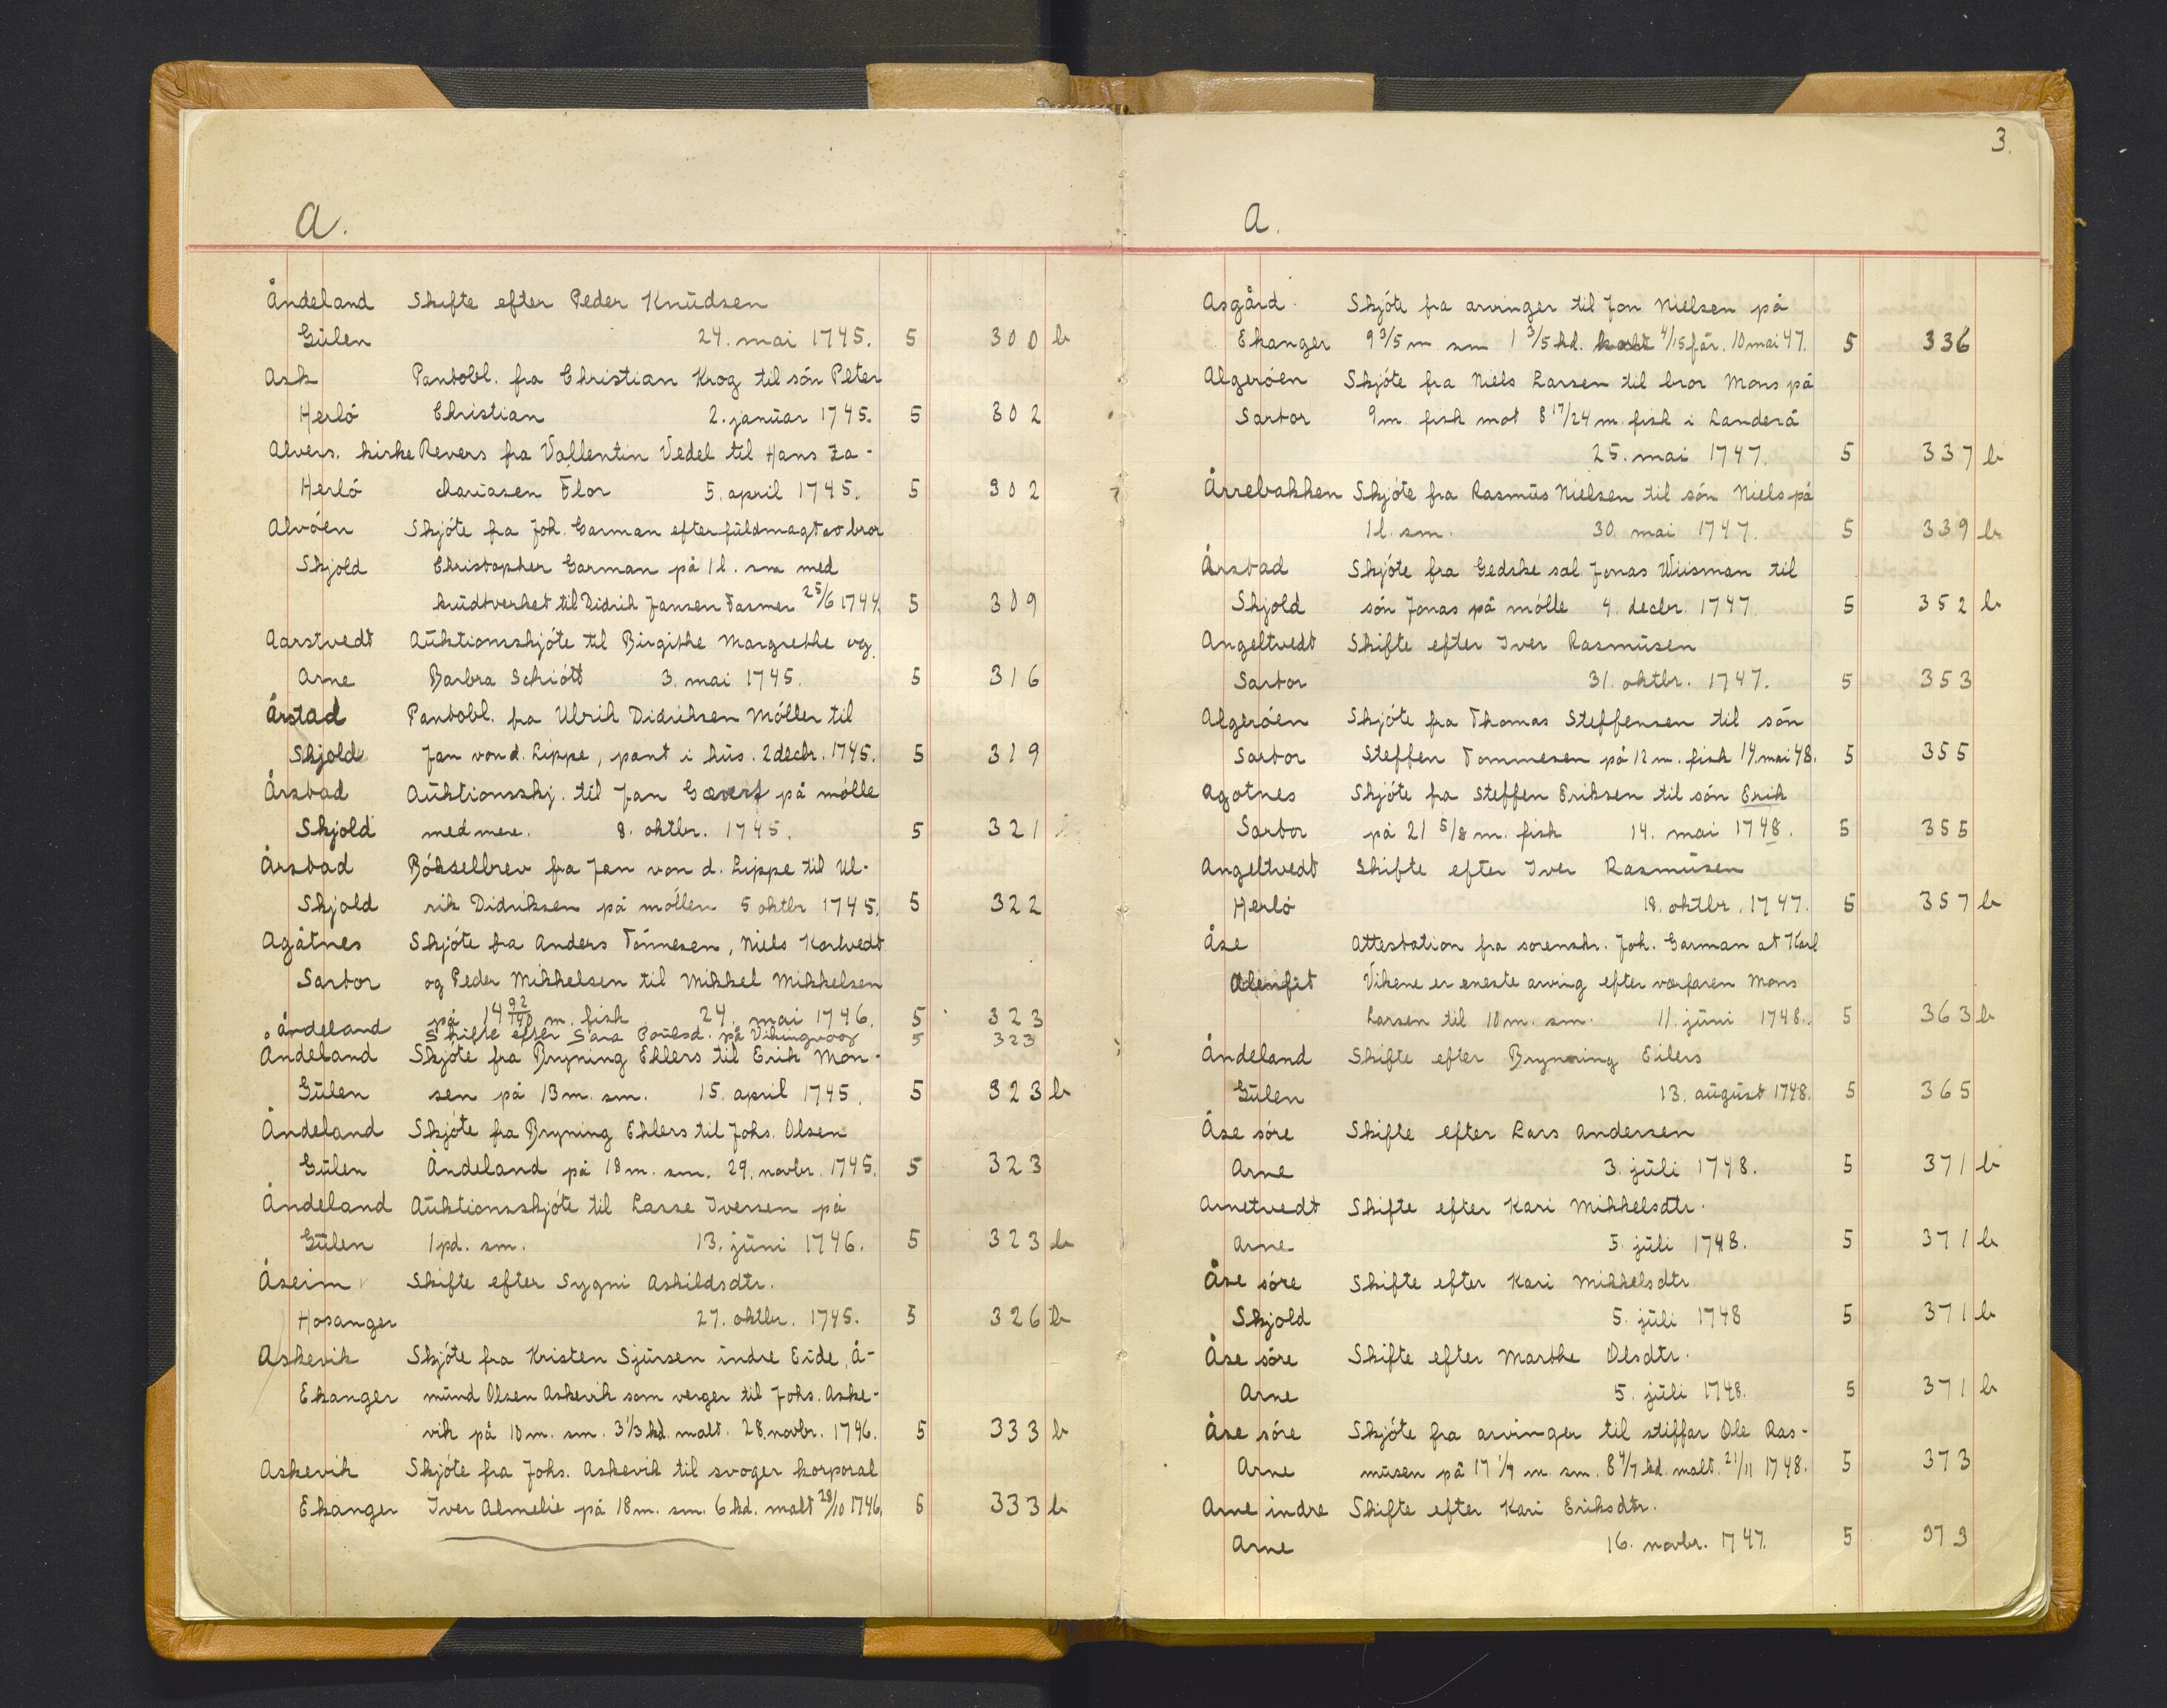 A.
Åndeland Skifte efter Peder Knudsen
Gulen 24. mai 1745. 5 300 b
Ask Pantobl. fra Christian Krog til søn Peter
Herlø Christian 2. januar 1745. 5 302
Alvers. kirke Revers fra Vallentin Vedel til Hans Za-
Herlø chariasen Flor 5. april 1745. 5 302
Alvøen Skjøte fra Joh. Garman efter fuldmagt av bror
Skjold Christopher Garman på 1 l. sm med
krudtverket til Didrik Jansen Fasmer 25/6 1744. 5 309
Aarstvedt Auktionsskjøte til Birgithe Margrethe og
Arne Barbra Schiøtt 3. mai 1745. 5 316
Årstad Pantobl. fra Ulrik Didriksen Møller til
Skjold Jan von d. Lippe, pant i hus. 2 decbr. 1745. 5 319
Årstad Auktionsskj. til Jan på mølle
Skjold med mere. 8. oktbr. 1745. 5 321
Årstad Bøksellbrev fra Jan von d. Lippe til Ul-
Skjold rik Didriksen på møllen 5 oktbr 1745. 5 322
Agåtnes Skjøte fra Anders Tønnesen, Niels Kartvedt
Sartor og Peder Mikkelsen til Mikkel Mikkelsen
på 14 92/140 m. fisk 24. mai 1746. 5 323
Åndeland Skifte efter Sara Poulsd. på Vikingvoog 5 323
Åndeland Skjøte fra Bryning Ehlers til Erik Mon-
Gulen sen på 13 m. sm. 15. april 1745. 5 323 b
Åndeland Skjøte fra Bryning Ehlers til Johs. Olsen
Gulen Åndeland på 18 m. sm. 29. novbr. 1745. 5 323
Åndeland Auktionsskjøte til Lasse Iversen på
Gulen 1 pd. sm. 13. juni 1746. 5 323 b
Åseim Skifte efter Sygni Askildsdtr.
Hosanger 27. oktbr. 1745. 5 326 b
Askevik Skjøte fra Kristen Sjursen indre Eide, Å-
Ekanger mund Olsen Askevik som verger til Johs. Aske-
vik på 10 m. sm. 3 1/3 hd. malt. 28. novbr. 1746. 5 333 b
Askevik Skjøte fra Johs. Askevik til svoger korporal
Ekanger Iver Almelie på 18 m. sm. 6 hd. malt 28/10 1746. 5 333 b
3.
A.
Asgård Skjøte fra arvinger til Jon Nielsen på
Ekanger 9 3/5 m sm 1 3/5 hd. 4/15 får. 10 mai 47. 5 336
Algerøen Skjøte fra Niels Larsen til bror Mons på
Sartor 9 m. fisk mot 8 17/24 m. fisk i Landerå
25. mai 1747. 5 337 b
Årrebakken Skjøte fra Rasmus Nielsen til søn Niels på
1 l. sm. 30. mai 1747. 5 339 b
Årstad Skjøte fra Gedske sal. Jonas Wiisman til
Skjold søn Jonas på mølle 4. decbr. 1747. 5 352 b
Angeltvedt Skifte efter Iver Rasmusen
Sartor 31. oktbr. 1747. 5 353
Algerøen Skjøte fra Thomas Steffensen til søn
Sartor Steffen Tommesen på 12 m. fisk 14. mai 48. 5 355
Agotnes Skjøte fra Steffen Eriksen til søn Erik
Sartor på 21 5/8 m. fisk 14. mai 1748. 5 355
Angeltvedt Skifte efter Iver Rasmusen
Herlø 18. oktbr. 1747. 5 357 b
Åse Attestation fra sorenskr. Joh. Garman at Karl
Alenfit Vikene er eneste arving efter værfaren Mons
Larsen til 10 m. sm. 11. juni 1748. 5 363 b
Åndeland Skifte efter Brynning Eilers
Gulen 13. august 1748. 5 365
Åse søre Skifte efter Lars Andersen
Arne 3. juli 1748. 5 371 b
Arnetvedt Skifte efter Kari Mikkelsdtr.
Arne 5. juli 1748. 5 371 b
Åse søre Skifte efter Kari Mikkelsdtr
Skjold 5. juli 1748 5 371 b
Åse søre Skifte efter Marthe Olsdtr.
Arne 5. juli 1748. 5 371 b
Åse søre Skjøte fra arvinger til stiffar Ole Ras-
Arne musen på 17 1/7 m. sm. 8 4/7 hd. malt. 21/11 1748. 5 373
Arne indre Skifte efter Kari Eriksdtr.
Arne 16. novbr. 1747. 5 373